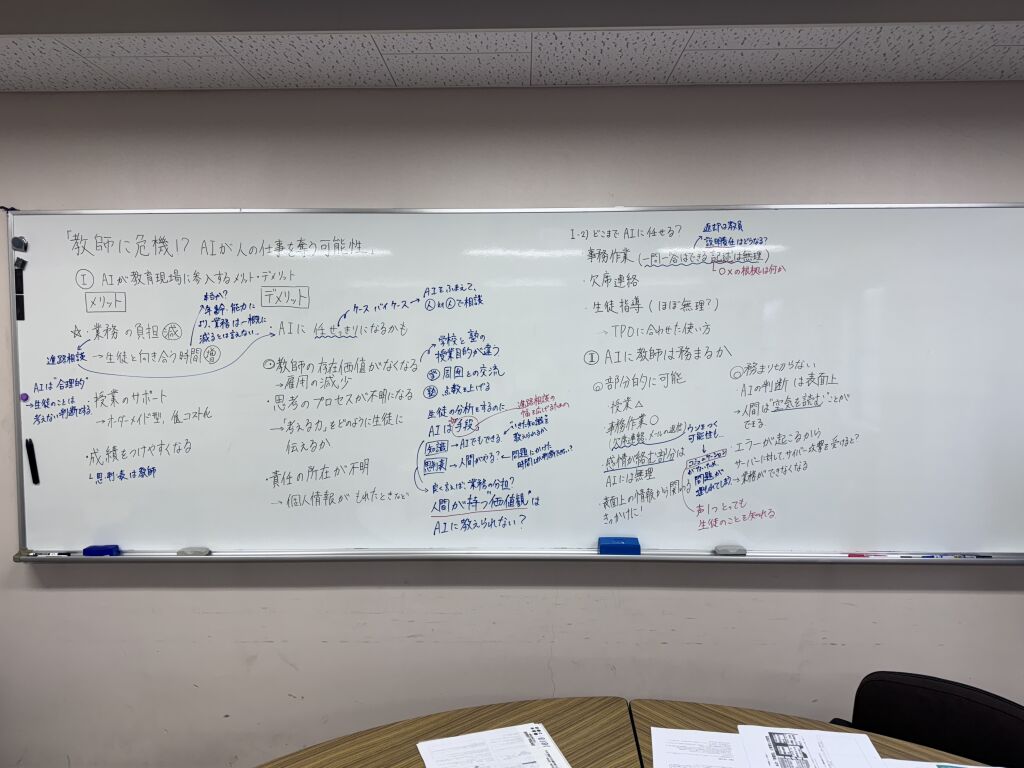 「教師に危機!? AIが人の仕事を奪う可能性」
Ⅰ AIが教育現場に参入するメリット・デメリット
メリット
☆・業務の負担減
→生徒と向き合う時間増
進路相談
本当か?
年齢・能力に
より、業務は一概に
減るとは言えない。
AIは"合理的"
→生徒のことは
考えない判断をする。
・授業のサポート
→オーダーメイド型、低コスト化
・成績をつけやすくなる
└思判表は教師
デメリット
・AIに任せっきりになるかも
ケースバイケース
AIをふまえて、
人対人で相談
教師の存在価値がなくなる
→雇用の減少
・思考のプロセスが不明になる
→「考える力」をどのように生徒に
伝えるか
・責任の所在が不明
→個人情報がもれたときなど
学校と塾の
授業目的が違う
学 周囲との交流
塾 点数を上げる
生徒の分析をするのに
AIは手段
進路相談の
幅を広げるための
知識→AIでもできる
思判表→人間がやる?
いき方の識を
教えられるか
問題にかけた
時間
良く言えば、業務の分担?
人間が持つ"価値観"は
AIに教えられない?
Ⅰ-2)どこまでAIに任せる?
事務作業(一問一答はできる 記述は無理)
説明責任はどうなる?
└○×の根拠は何か
・欠席連絡
・生徒指導(ほぼ無理?)
→TPOに合わせた使い方
Ⅱ AIに教師は務まるか
部分的に可能
授業△
事務作業○
(欠席連絡、メールの返信)
ウソをつく
可能性も…
・感情が絡む部分は
AIには無理
コミュニケーション
がないため
問題が
・表面上の情報から関わる
きっかけに!
声1つとっても
生徒のことを知れる
務まりきらない
AIの判断は表面上
→人間は"空気を読む"ことが
できる
・エラーが起こるから
サーバーに対して、サイバー攻撃を受けると?
→業務ができなくなる